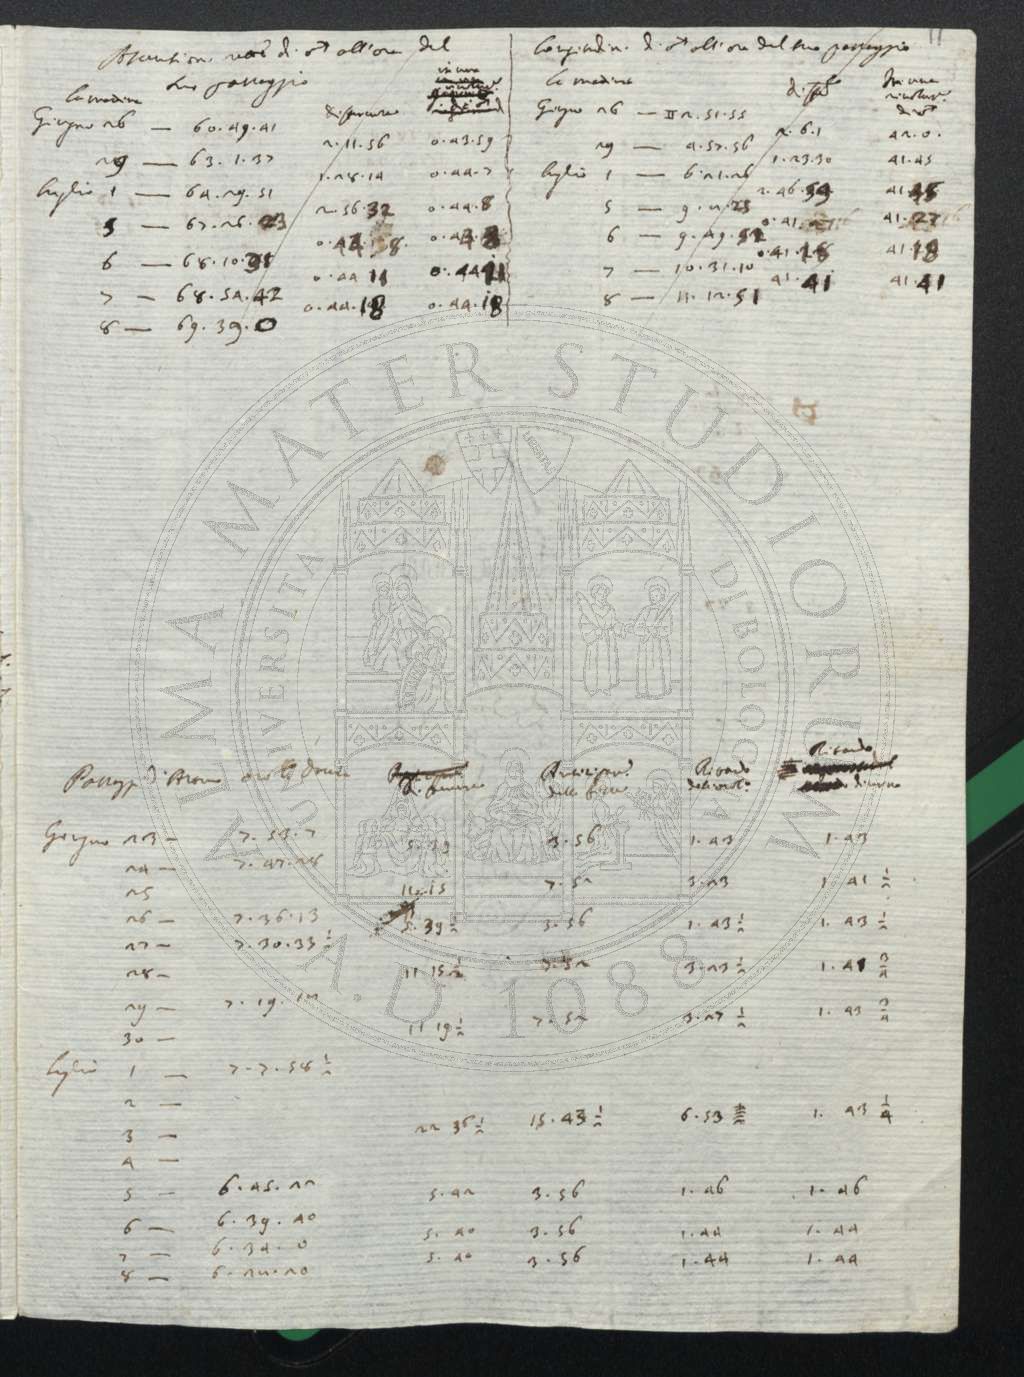 11
Ascensioni rette di ♂ all'ora del
suo passaggio
la medina
differenze
Giugno 26 — 60.49.41
29 — 63. 1. 37
2.11.56 0.43.59
Luglio 1 — 64.29.51
1.28.14 0.44.7
5 — 67.26.23
2.56.32 0.44.8
6 — 68.10.31
0.44.8
7 — 68.54.42
0.44.11 0.44.11
8 — 69.39.0
0.44.18 0.44.18
Longitudini di ♂ all'ora del suo passaggio
la medina
diff.
In una
rivoluz.
di ♂
Giugno 26 — II 2.51.55
29 — 4.57.56
2.6.1 42.0.
Luglio 1 — 6.21.26
1.23.30 41.45
5 — 9.
2.46.59 41.45
6 — 9.49.52
0.41.27 41.27
7 — 10.31.10
0.41.18 41.18
8 — 11.12.51
41.41 41.41
ALMA MATER STUDIORUM
UNIVERSITÀ DI BOLOGNA
LIBERTAS
A.D. 1088
Passaggi di
Anticipaz.
delle fisse
Ritardo
Ritardo
diurno
Giugno 23 — 7.53.7
5.39 3.56 1.43 1.43
24 — 7.47.28
25
11.15 7.52 3.23 1.41 1/2
26 — 7.36.13
5.39 1/2 3.56 1.43 1/2 1.43 1/2
27 — 7.30.33 1/2
28 —
11 15 1/2 7.52 3.23 1/2 1.41 3/4
29 — 7.19.
11 19 1/2 7.52 3.27 1/2 1.43 3/4
30 —
Luglio 1 — 7.7.58 1/2
2 —
3 —
22 36 1/2 15.43 1/2 6.53 1. 43 1/4
4 —
5 — 6.45.22
5.42 3.56 1.46 1.46
6 — 6.39.40
5.40 3.56 1.44 1.44
7 — 6.34.0
5.40 3.56 1.44 1.44
8 — 6.